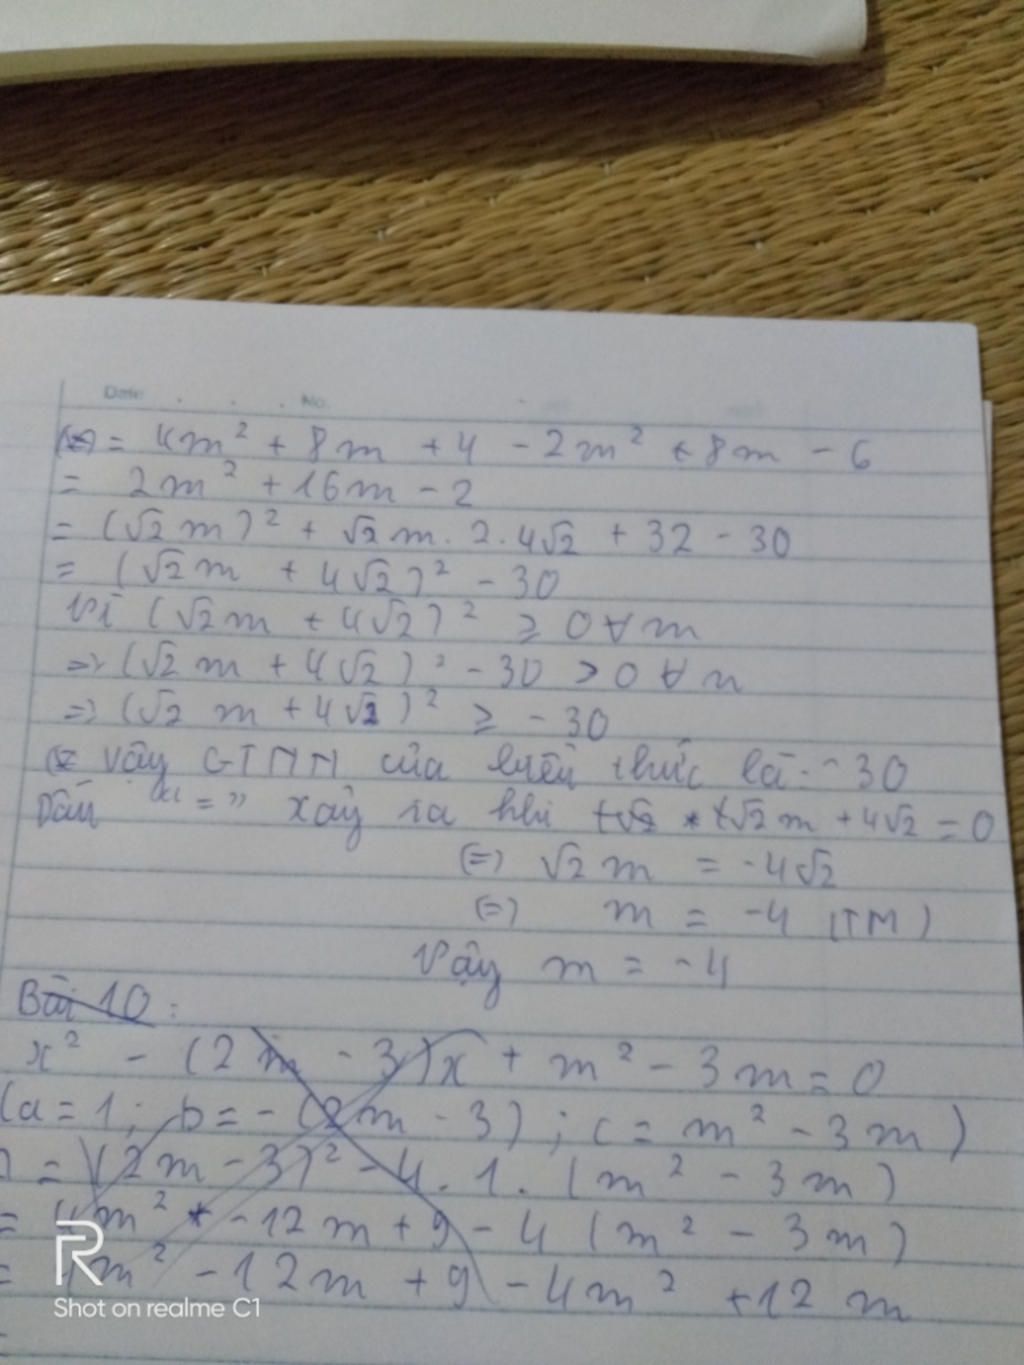 Date . . . No.
(*) = 4m² + 8m + 4 - 2m² + 8m - 6
= 2m² + 16m - 2
= (√2 m)² + √2 m . 2 . 4√2 + 32 - 30
= (√2m + 4√2)² - 30
Vì (√2m + 4√2)² ≥ 0 ∀ m
=> (√2 m + 4√2)² - 30 > 0 ∀ n
=> (√2 m + 4√2)² ≥ - 30
Vậy GTNN của biểu thức là: -30
Dấu "=" xảy ra khi √2m + 4√2 = 0
(=) √2 m = -4√2
(=) m = -4 (TM)
Vậy m = -4
Bài 10 :
x² - (2m - 3)x + m² - 3m = 0
(a = 1; b = -(2m - 3) ; c = m² - 3m)
= (2m - 3)² - 4 . 1 . (m² - 3m)
= 4m² - 12m + 9 - 4 (m² - 3m)
= 4m² - 12m + 9 - 4m² + 12 m
R
Shot on realme C1